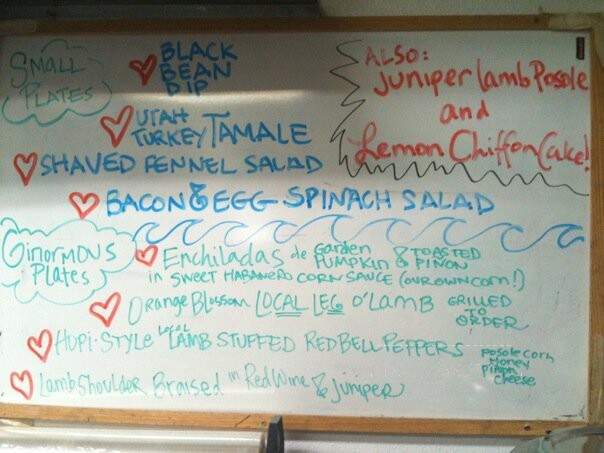 SMALL
PLATES
BLACK
BEAN
DIP
UTAH
TURKEY TAMALE
SHAVED FENNEL SALAD
BACON & EGG SPINACH SALAD
ALSO:
Juniper lamb Posole
and
Lemon Chiffon Cake!
GinorMOUS
Plates
Enchiladas de Garden PUMPKIN & TOASTED PIÑON
in SWEET HABANERO CORN SAUCE (our own corn!)
Orange Blossom LOCAL LEG O'LAMB GRILLED TO ORDER
HOPI-STYLE Local LAMB STUFFED RED BELL PEPPERS posole corn Honey Piñon cheese
Lamb Shoulder Braised in Red Wine & Juniper